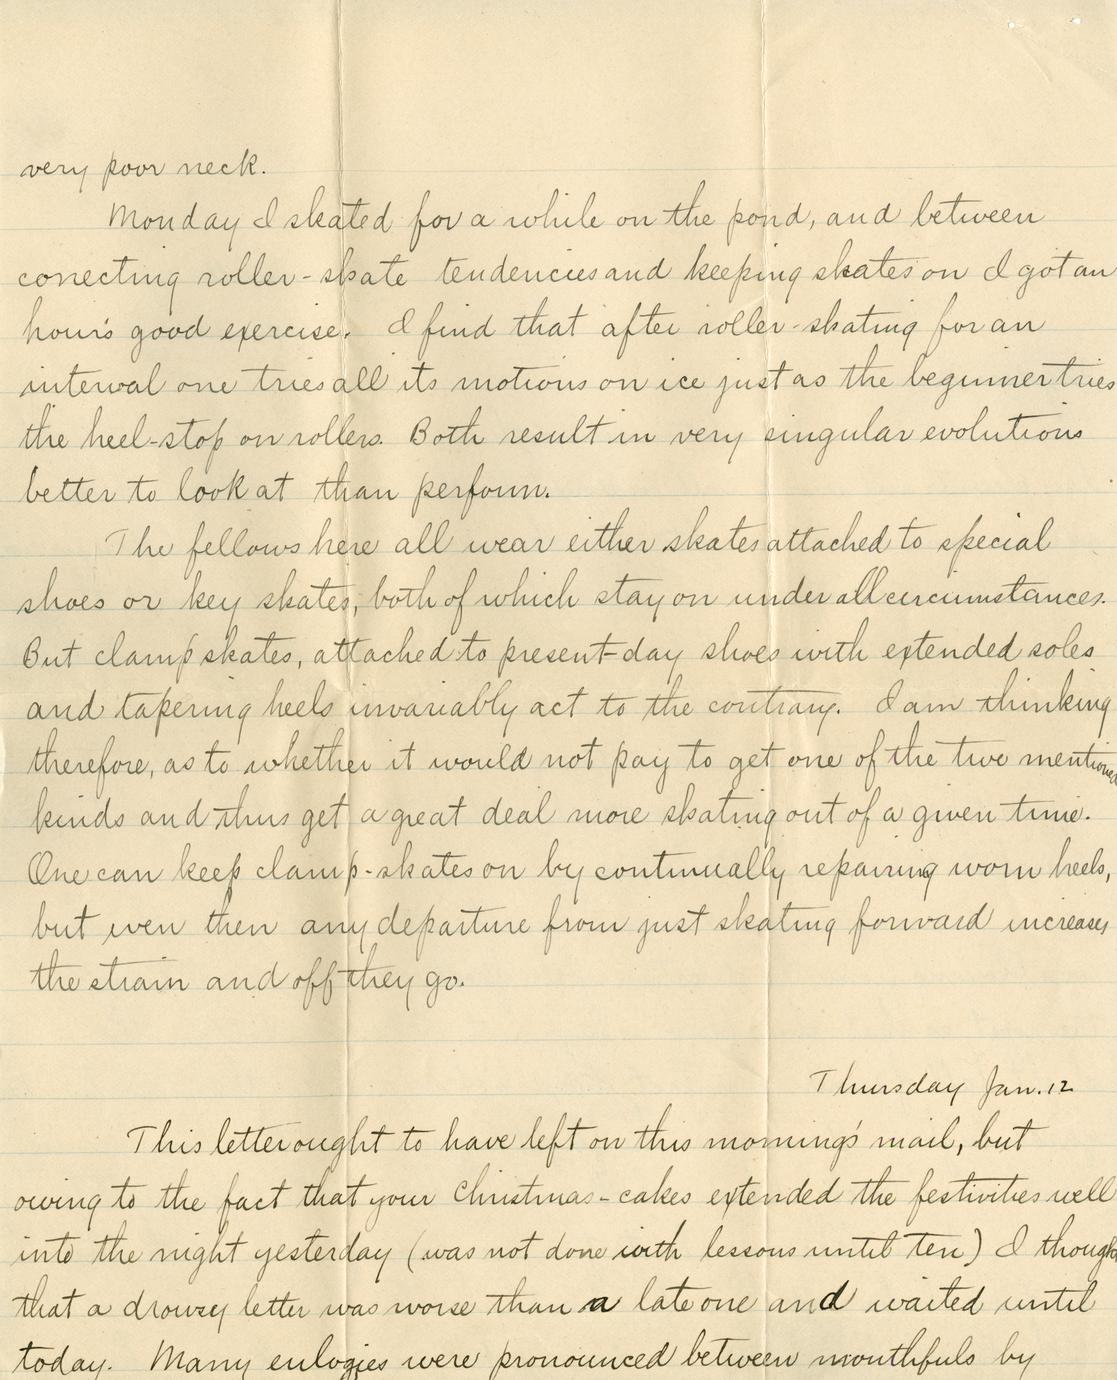 very poor neck.
Monday I skated for a while on the pond, and between
correcting roller-skate tendencies and keeping skates on I got an
hour's good exercise. I find that after roller-skating for an
interval one tries all its motions on ice just as the beginner tries
the heel-stop on rollers. Both result in very singular evolutions
better to look at than perform.
The fellows here all wear either skates attached to special
shoes or key skates, both of which stay on under all circumstances.
But clamp skates, attached to present-day shoes with extended soles
and tapering heels invariably act to the contrary. I am thinking
therefore, as to whether it would not pay to get one of the two mentioned
kinds and thus get a great deal more skating out of a given time.
One can keep clamp-skates on by continually repairing worn heels,
but even then any departure from just skating forward increases
the strain and off they go.
Thursday Jan. 12
This letter ought to have left on this morning's mail, but
owing to the fact that your Christmas-cakes extended the festivities well
into the night yesterday (was not done with lessons until ten) I thought
that a drowzy letter was worse than a late one and waited until
today. Many eulogies were pronounced between mouthfuls by